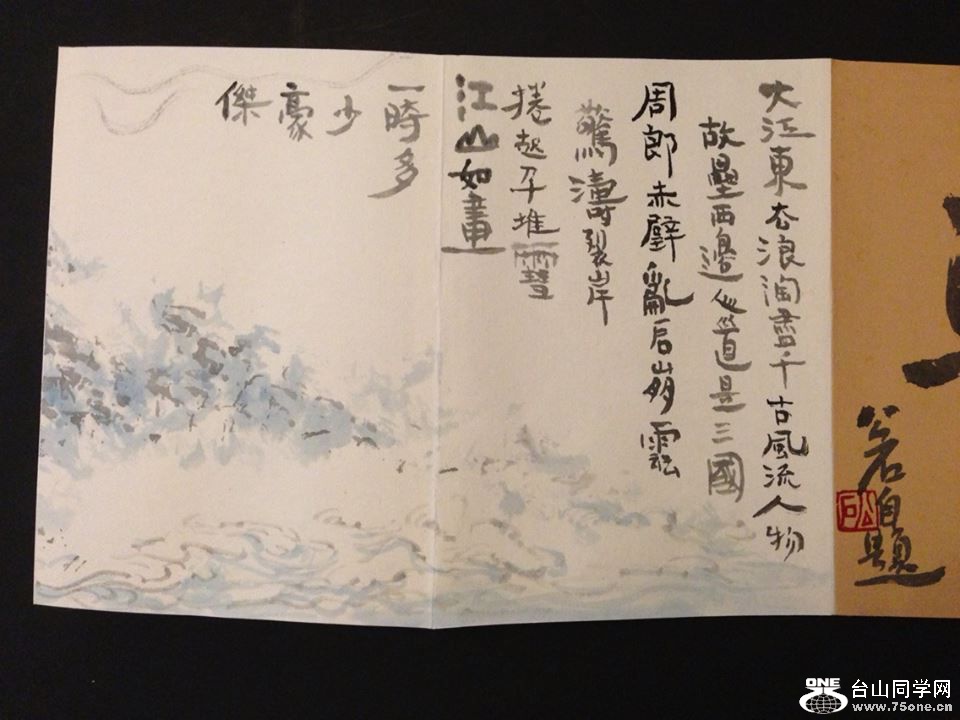 自題
大江東去浪淘盡千古風流人物
故壘西邊人道是三國
周郎赤壁亂石崩雲
驚濤裂岸
捲起千堆雪
江山如畫
一時多
少
豪
傑
ONE
台山同学网
www.75one.cn